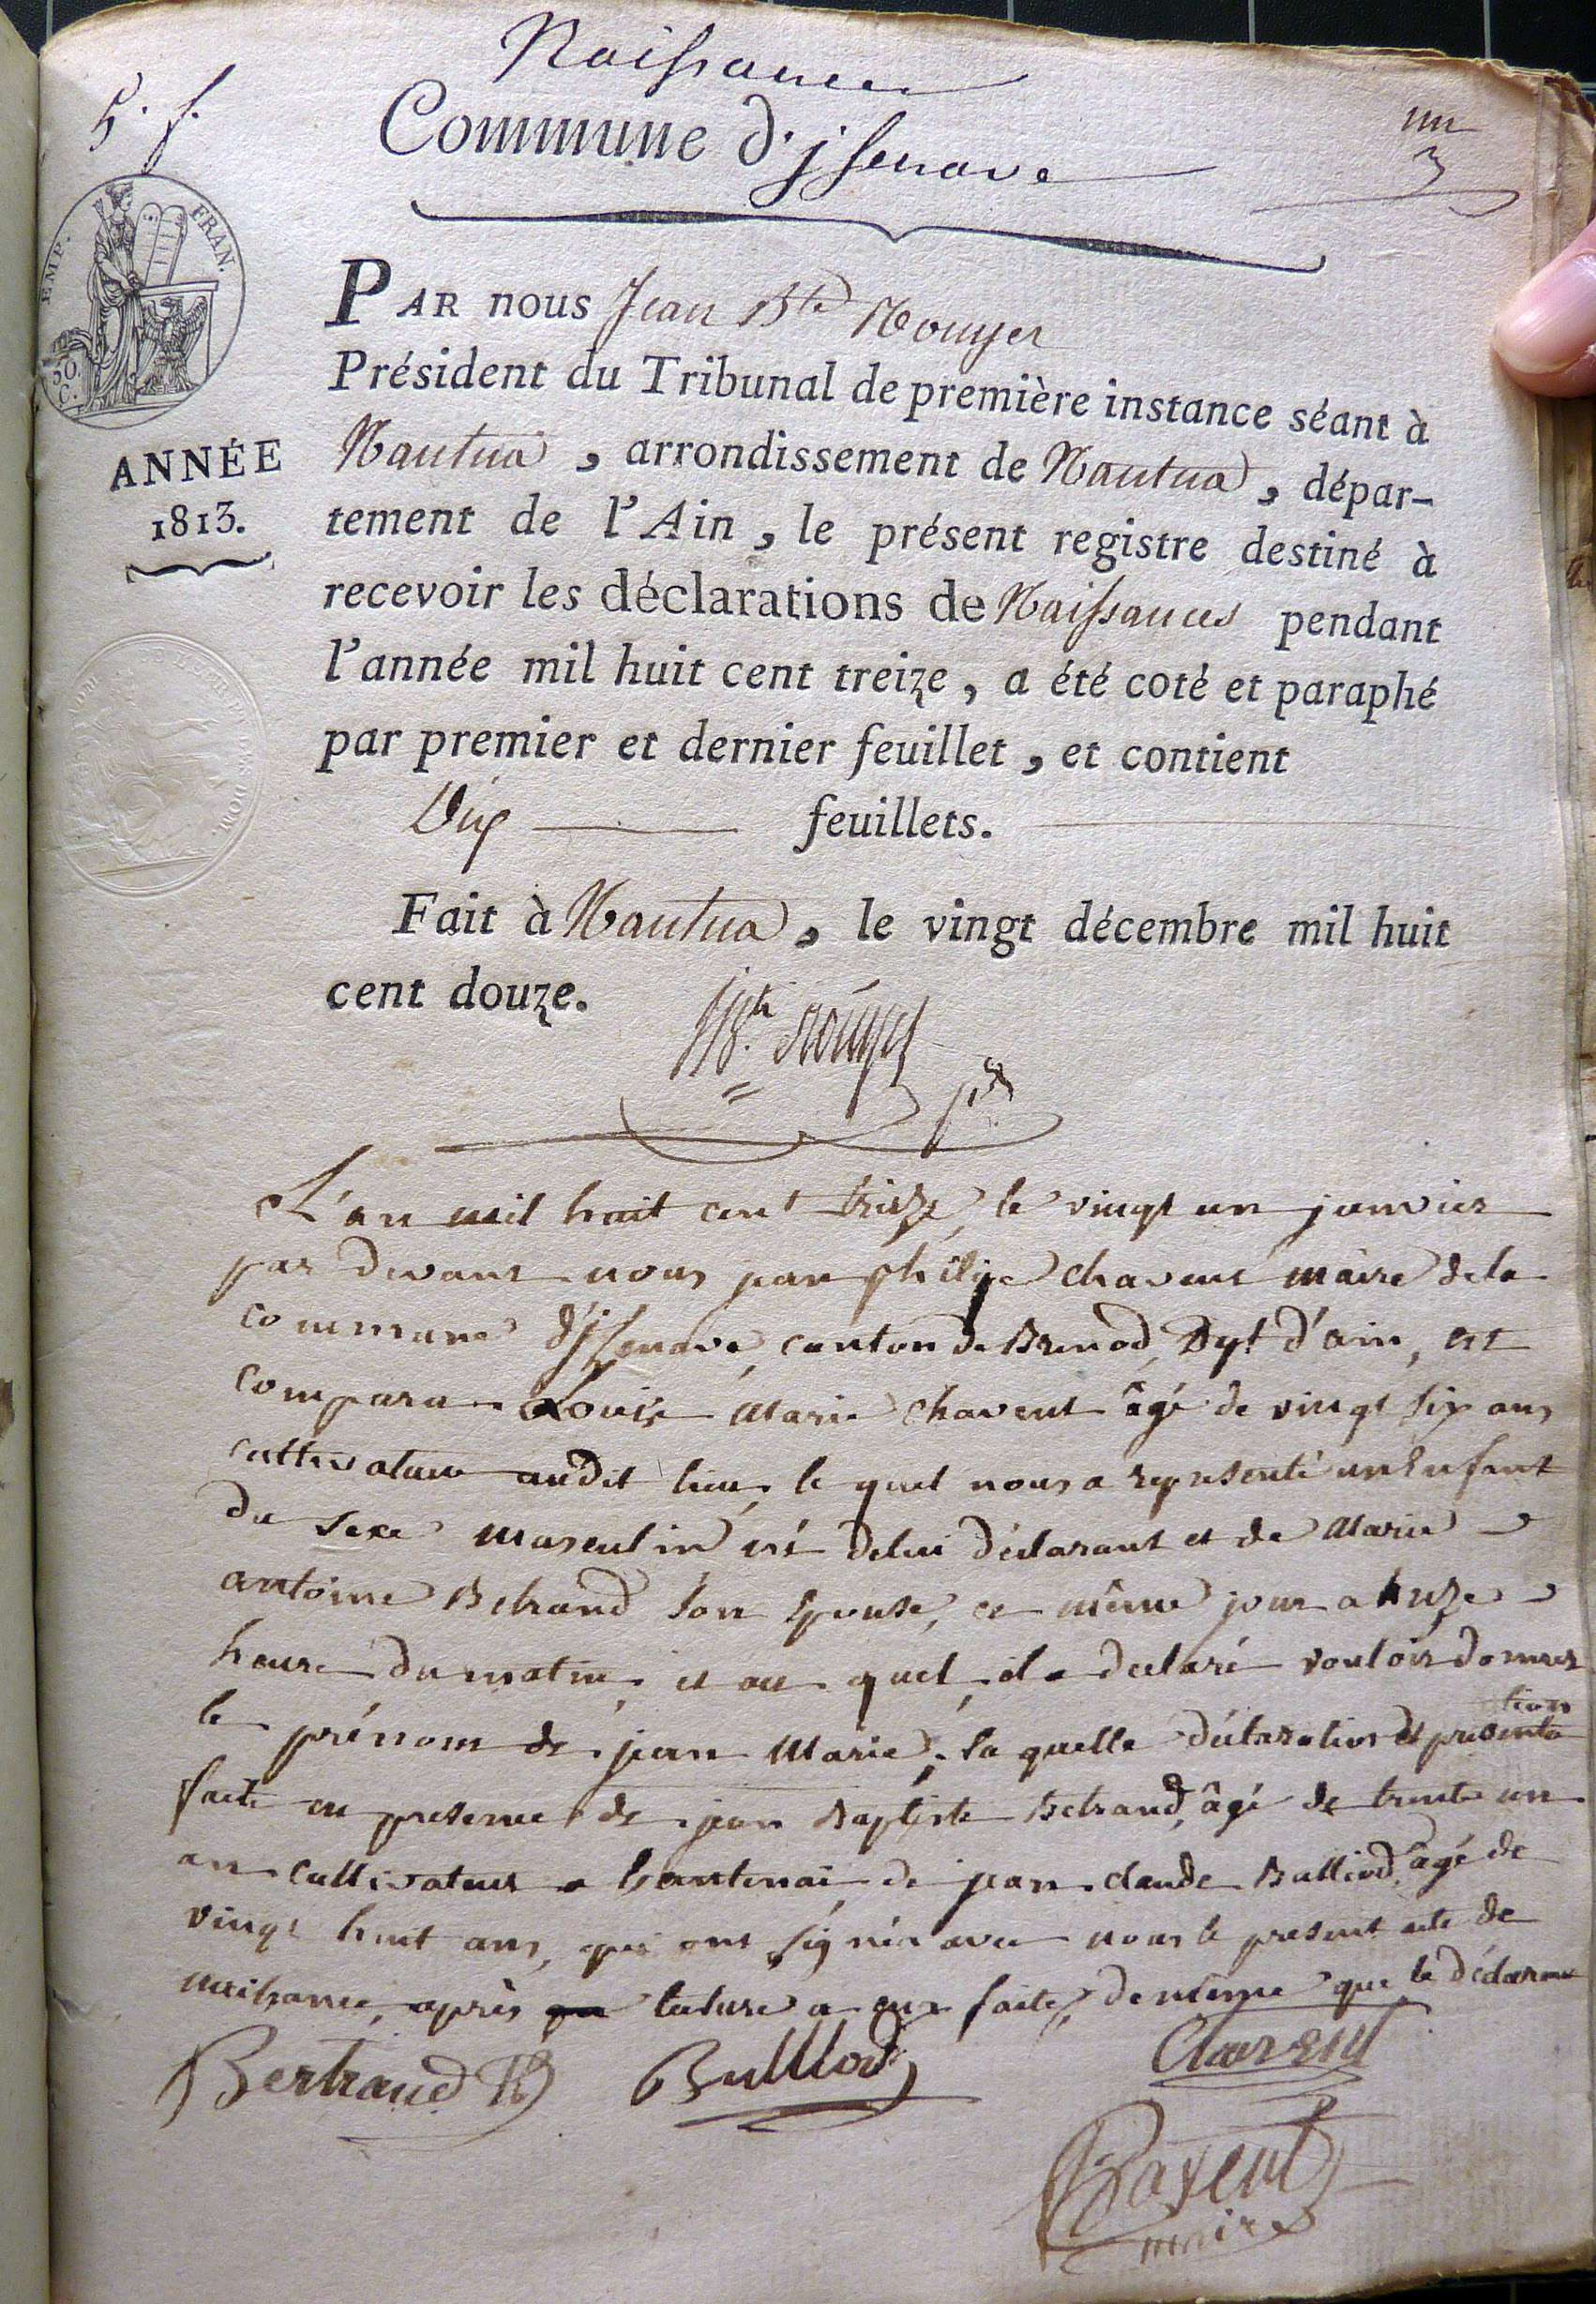 Naissances
5. f.
Commune d'jsenave
un
EMP. FRAN.
50. C.
PAR nous Jean Bte Rouyer
Président du Tribunal de première instance séant à
Nantua, arrondissement de Nantua, dépar-
tement de l'Ain, le présent registre destiné à
ANNÉE
1813.
recevoir les déclarations de Naissances pendant
l'année mil huit cent treize, a été coté et paraphé
par premier et dernier feuillet, et contient
Dix feuillets.
Fait à Nantua, le vingt décembre mil huit
cent douze.
L'an mil huit cent treize, le vingt un janvier
par devant nous jean philipe chavent maire de la
commune d'jsenave, canton de Brenod, Dpt d'ain, est
comparu Louis Marie chavent âgé de vingt six ans
cultivateur audit lieu, le quel nous a representé un Enfant
du sexe masculin né delui déclarant et de Marie
antoine Betrand son Epouse, ce même jour a onze
heure du matin, et au quel il a declaré vouloir donner
le prénom de jean Marie; la quelle déclaration et presenta
tion
faite en presence de jean Baptiste Betrand, âgé de trente un
an cultivateur a Lantenai, de jean claude Bulliod, âgé de
vingt huit ans, qui ont signés avec nous le present acte de
naissance, après lecture a eux faite, de même que le déclarant
Bertrand Bulliod Chavent
Chavent
maire